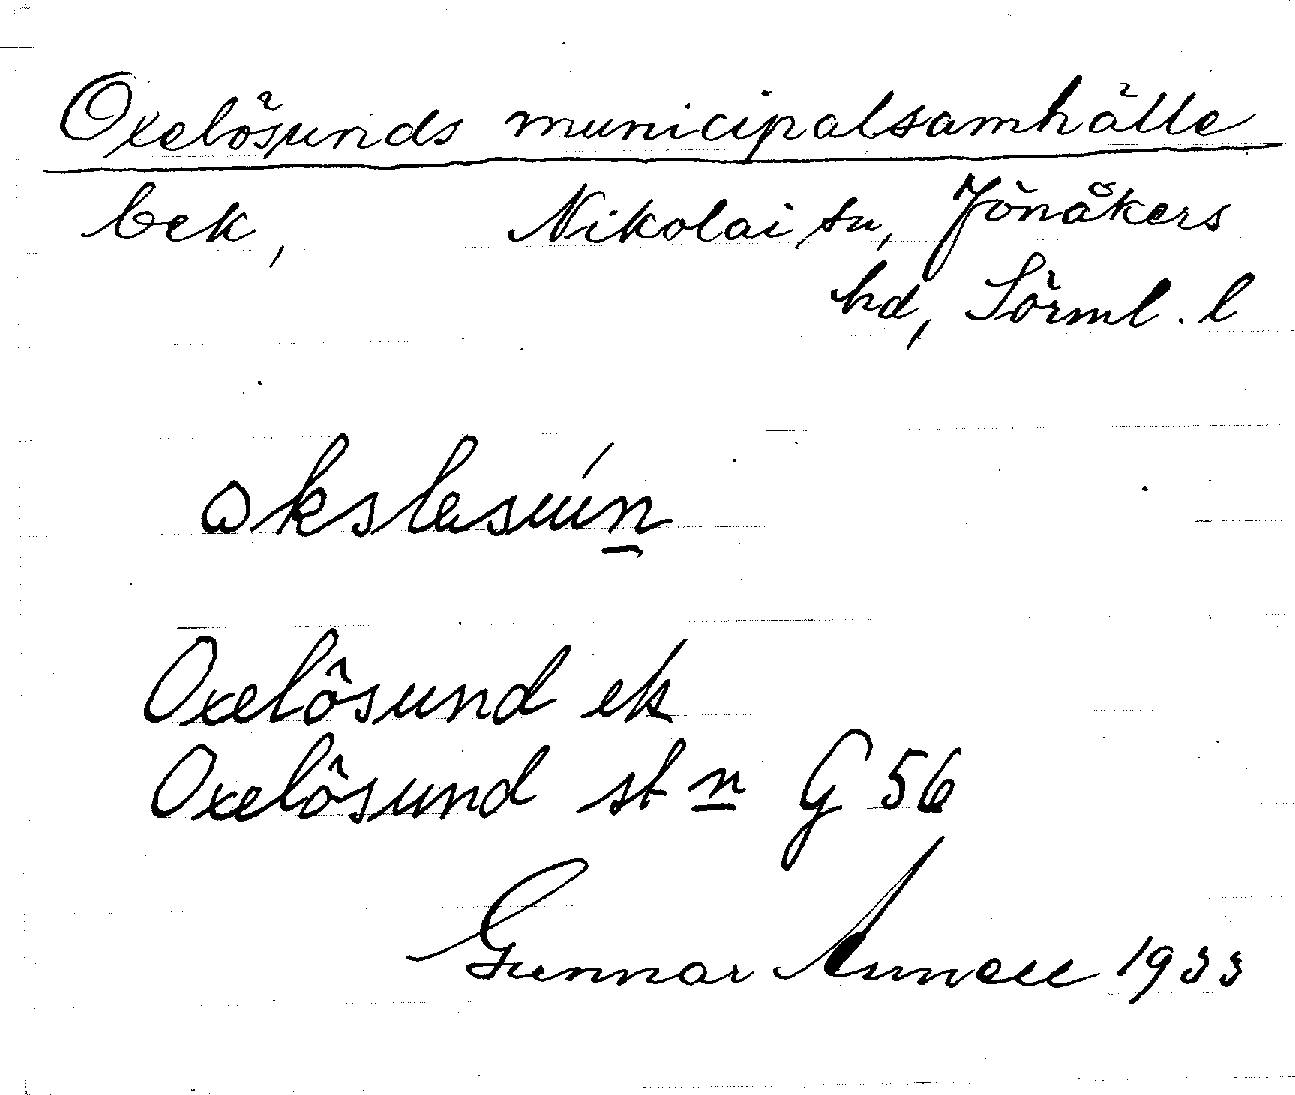 Oxelösunds municipalsamhälle
bek, Nikolai sn, Jönåkers
hd, Sörml. l
Oxelösund ek
Oxelösund st n G 56
Gunnar 1933